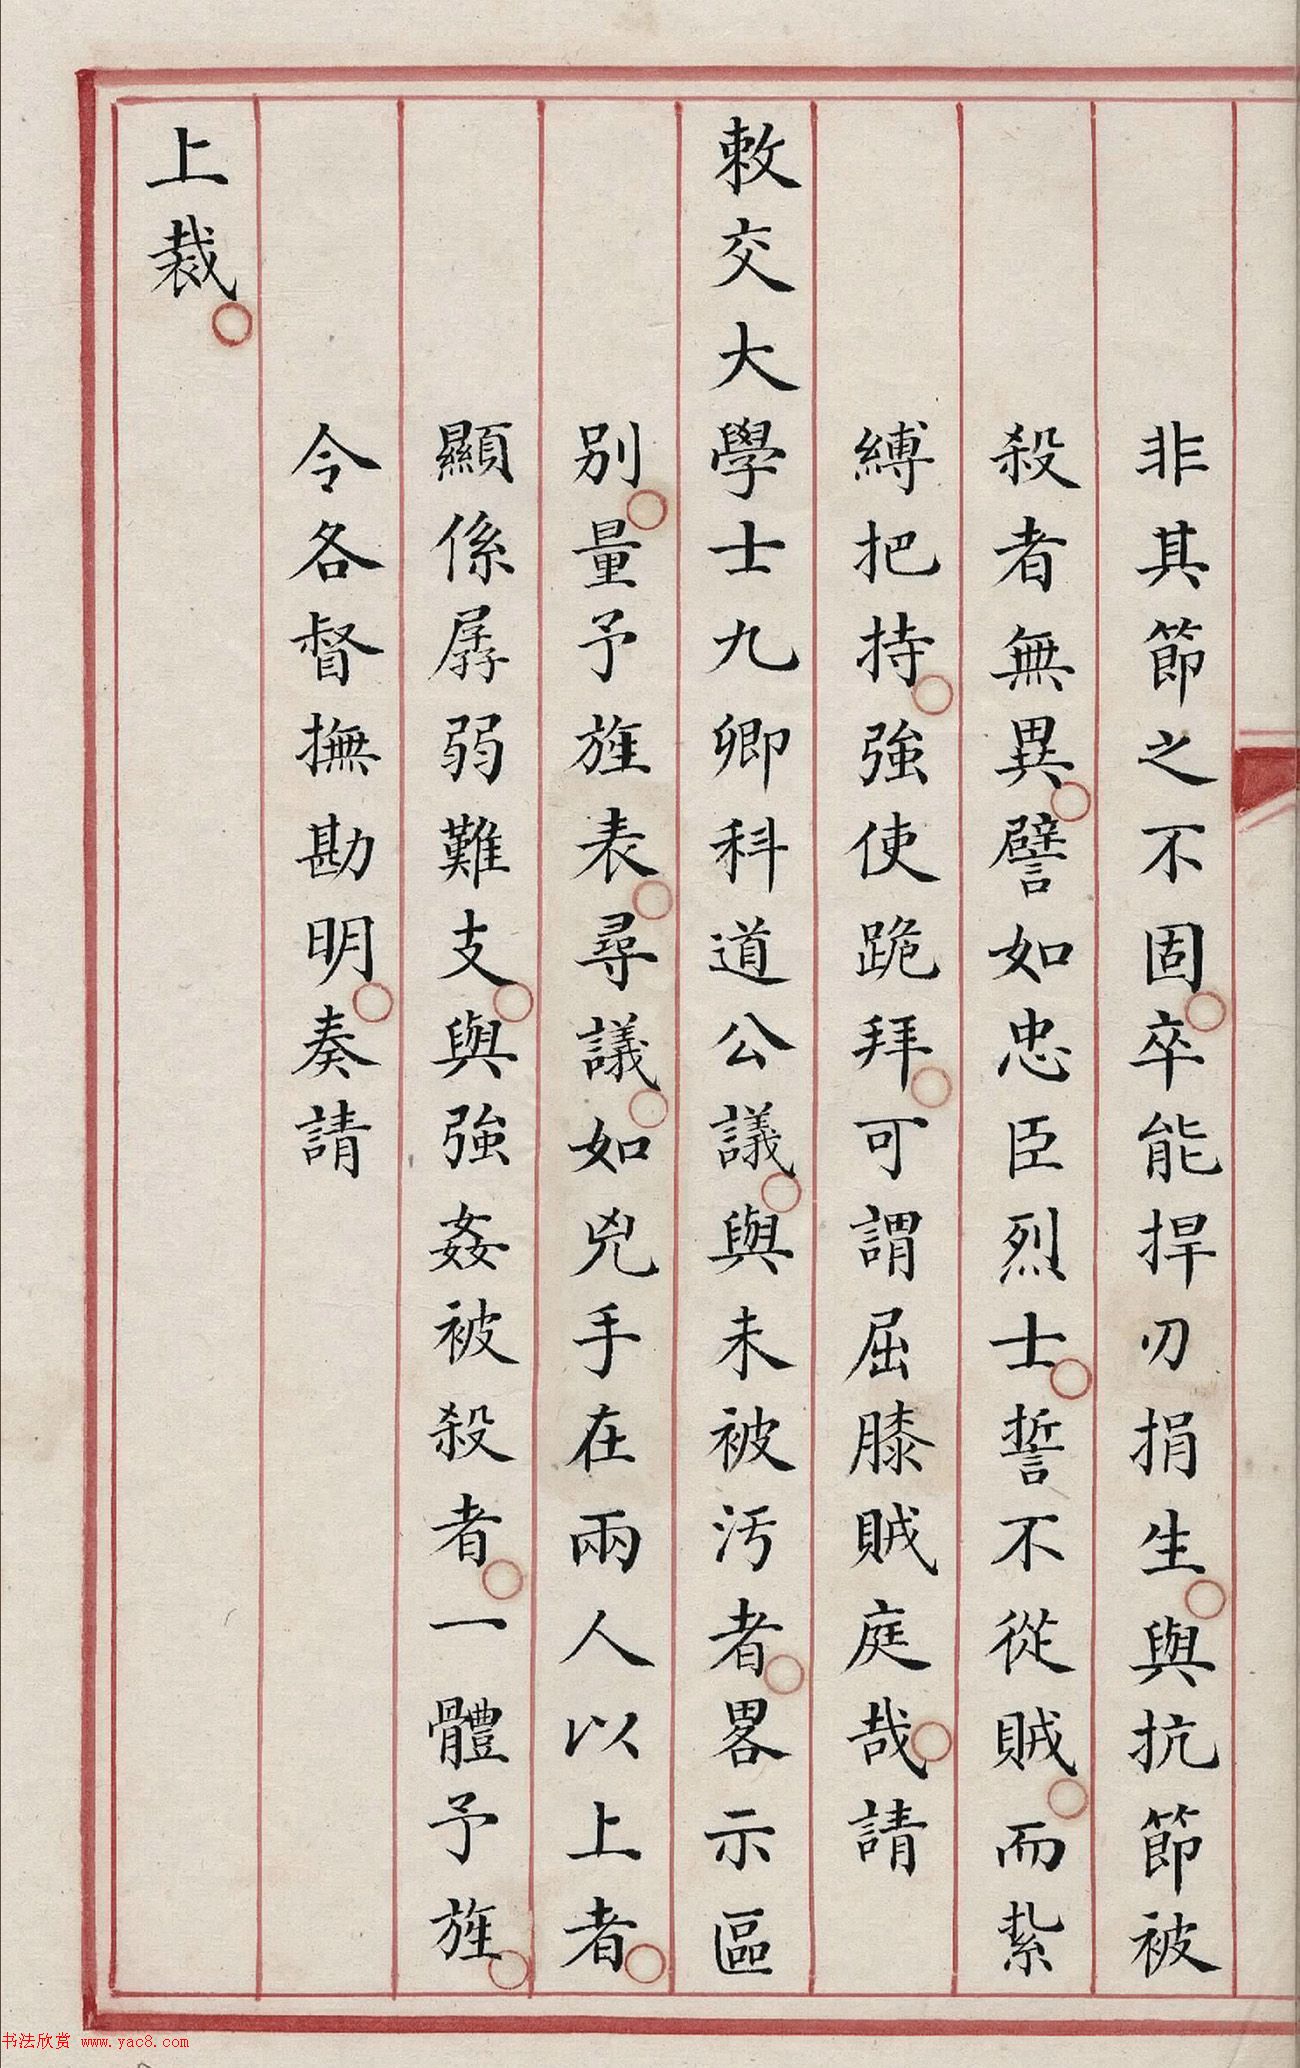 非其節之不固卒能捍刃捐生與抗節被
殺者無異譬如忠臣烈士誓不從賊而紮
縛把持強使跪拜可謂屈膝賊庭哉請
敕交大學士九卿科道公議與未被污者畧示區
別量予旌表尋議如兇手在兩人以上者
顯係孱弱難支與強姦被殺者一體予旌
令各督撫勘明奏請
上裁
书法欣赏 www.yac8.com